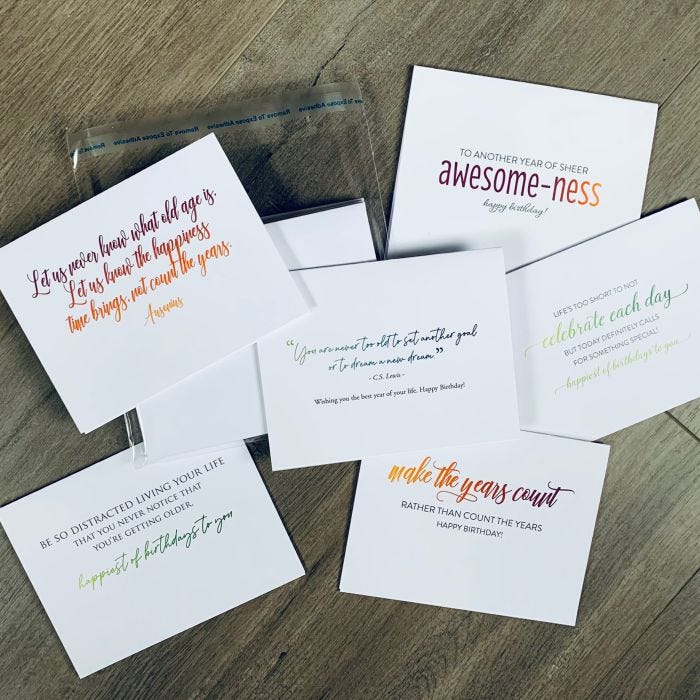 Remove To Expose Adhesive Remove To Expose Adhesive Remove To Expose Adhesive
TO ANOTHER YEAR OF SHEER
awesome-ness
happy birthday!
Let us never know what old age is.
Let us know the happiness
time brings, not count the years.
Ausonius
LIFE'S TOO SHORT TO NOT
celebrate each day
BUT TODAY DEFINITELY CALLS
FOR SOMETHING SPECIAL!
happiest of birthdays to you
"You are never too old to set another goal
or to dream a new dream."
- C.S. Lewis -
Wishing you the best year of your life. Happy Birthday!
BE SO DISTRACTED LIVING YOUR LIFE
THAT YOU NEVER NOTICE THAT
YOU'RE GETTING OLDER.
happiest of birthdays to you
make the years count
RATHER THAN COUNT THE YEARS
HAPPY BIRTHDAY!